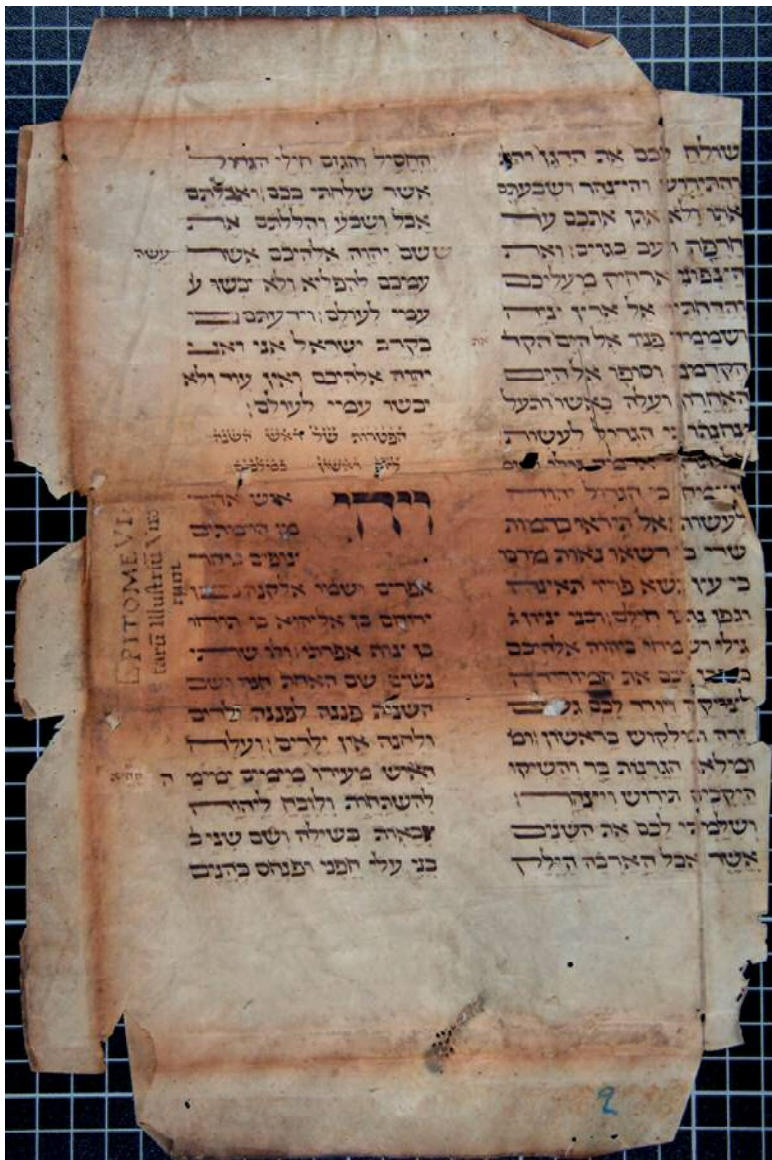 שולח לכם את הדגן
והתירוש והיצהר ושבעתם
אתו ולא אתן אתכם עוד
חרפה בגוים ואת
הצפוני ארחיק מעליכם
והדחתיו אל ארץ ציה
פניו אל הים הקד
את
הקדמוני וסופו אל הים
האחרון ועלה באשו ותעל
צחנתו כי הגדיל לעשות
כי הגדיל יהוה
לעשות אל תיראו בהמות
שדי כי דשאו נאות מדבר
כי עץ נשא פריו תאינה
וגפן נתנו חילם ובני ציון ג
גילו ושמחו ביהוה אלהיכם
לכם את המורה
לצדקה ויורד לכם גשם
ומלקוש בראשון ומ
ומלאו הגרנות בר והשיקו
היקבים תירוש ויצהר
ושלמתי לכם את השנים
אשר אכל הארבה הילק
החסיל והגזם חילי הגדול
אשר שלחתי בכם ואכלתם
אכל ושבע והללתם את
ש שם יהוה אלהיכם אשר עשה
עמכם להפליא ולא יבשו ע
עמי לעולם וידעתם כי
בקרב ישראל אני ואני
יהוה אלהיכם ואין עוד ולא
יבשו עמי לעולם
הפטרות של ראש השנה
ליום ראשון
ויהי איש אחד
מן הרמתים
צופים מהר
אפרים ושמו אלקנה בן
ירוחם בן אליהוא בן תוחו
בן צוף אפרתי ולו שתי
נשים שם האחת חנה ושם
השנית פננה לפננה ילדים
ולחנה אין ילדים ועלה
ה האיש מעירו מימים ימימה
להשתחוה ולזבח ליהוה
צבאות בשילה ושם שני ב
בני עלי חפני ופנחס כהנים
EPITOME VI
tarū Illustriū Viro
rum
2